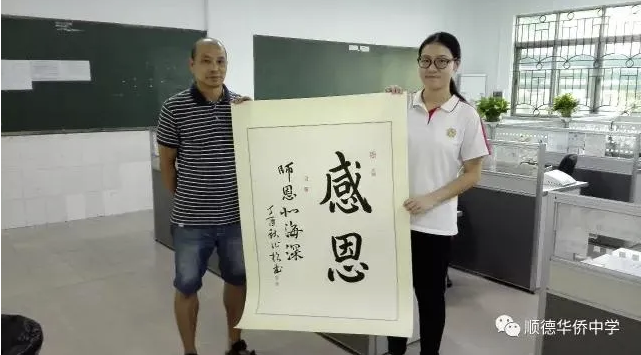 感恩
师恩似海深
丁酉秋
顺德华侨中学